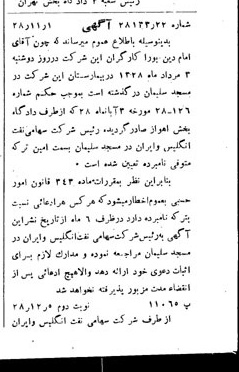 رئیس شعبه ۲ دادگاه بخش تهران
شماره ۲۸۱۴۳٫۲۲ آگهی ۲۸٫۱۱٫۱
بدینوسیله باطلاع عموم میرساند که چون آقای
امام دین بورا کارگران این شرکت در روز دوشنبه
۳ مرداد ماه ۱۳۲۸ در بیمارستان این شرکت در
مسجد سلیمان در گذشته است بموجب حکم شماره
۱۲۶-۲۸ مورخه ۳ آبانماه ۲۸ که از طرف دادگاه
بخش اهواز صادر گردیده رئیس شرکت سهامی نفت
انگلیس و ایران در مسجد سلیمان بسمت امین ترکه
متوفی نامبرده تعیین شده است ۰
بنابراین نظر بمقررات ماده ۳۴۳ قانون امور
حسبی بعموم اخطار میشود که هر کس هر ادعائی نسبت
بترکه نامبرده دارد در ظرف ۶ ماه از تاریخ نشر این
آگهی به رئیس شرکت سهامی نفت انگلیس و ایران در
مسجد سلیمان مراجعه نموده و مدارك لازم برای
اثبات دعوی خود ارائه دهد والا هیچ ادعائی پس از
انقضاء مدت مزبور پذیرفته نخواهد شد
پ ۱۱۰۶۵ نوبت دوم ۲۸٫۱۲٫۵
از طرف شرکت سهامی نفت انگلیس و ایران